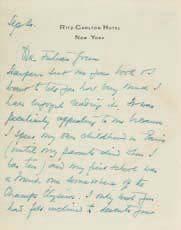 RITZ-CARLTON HOTEL
NEW YORK
Sept.
Dear Julian Green
Harpers sent me your book & I
want to tell you how very much I
have enjoyed reading it. It was
peculiarly appealing to me because
I spent my own childhood in Paris
(until my parents died when I
was ten) and my first school was
a the
Champs Elysées. I only wish you
had felt inclined to